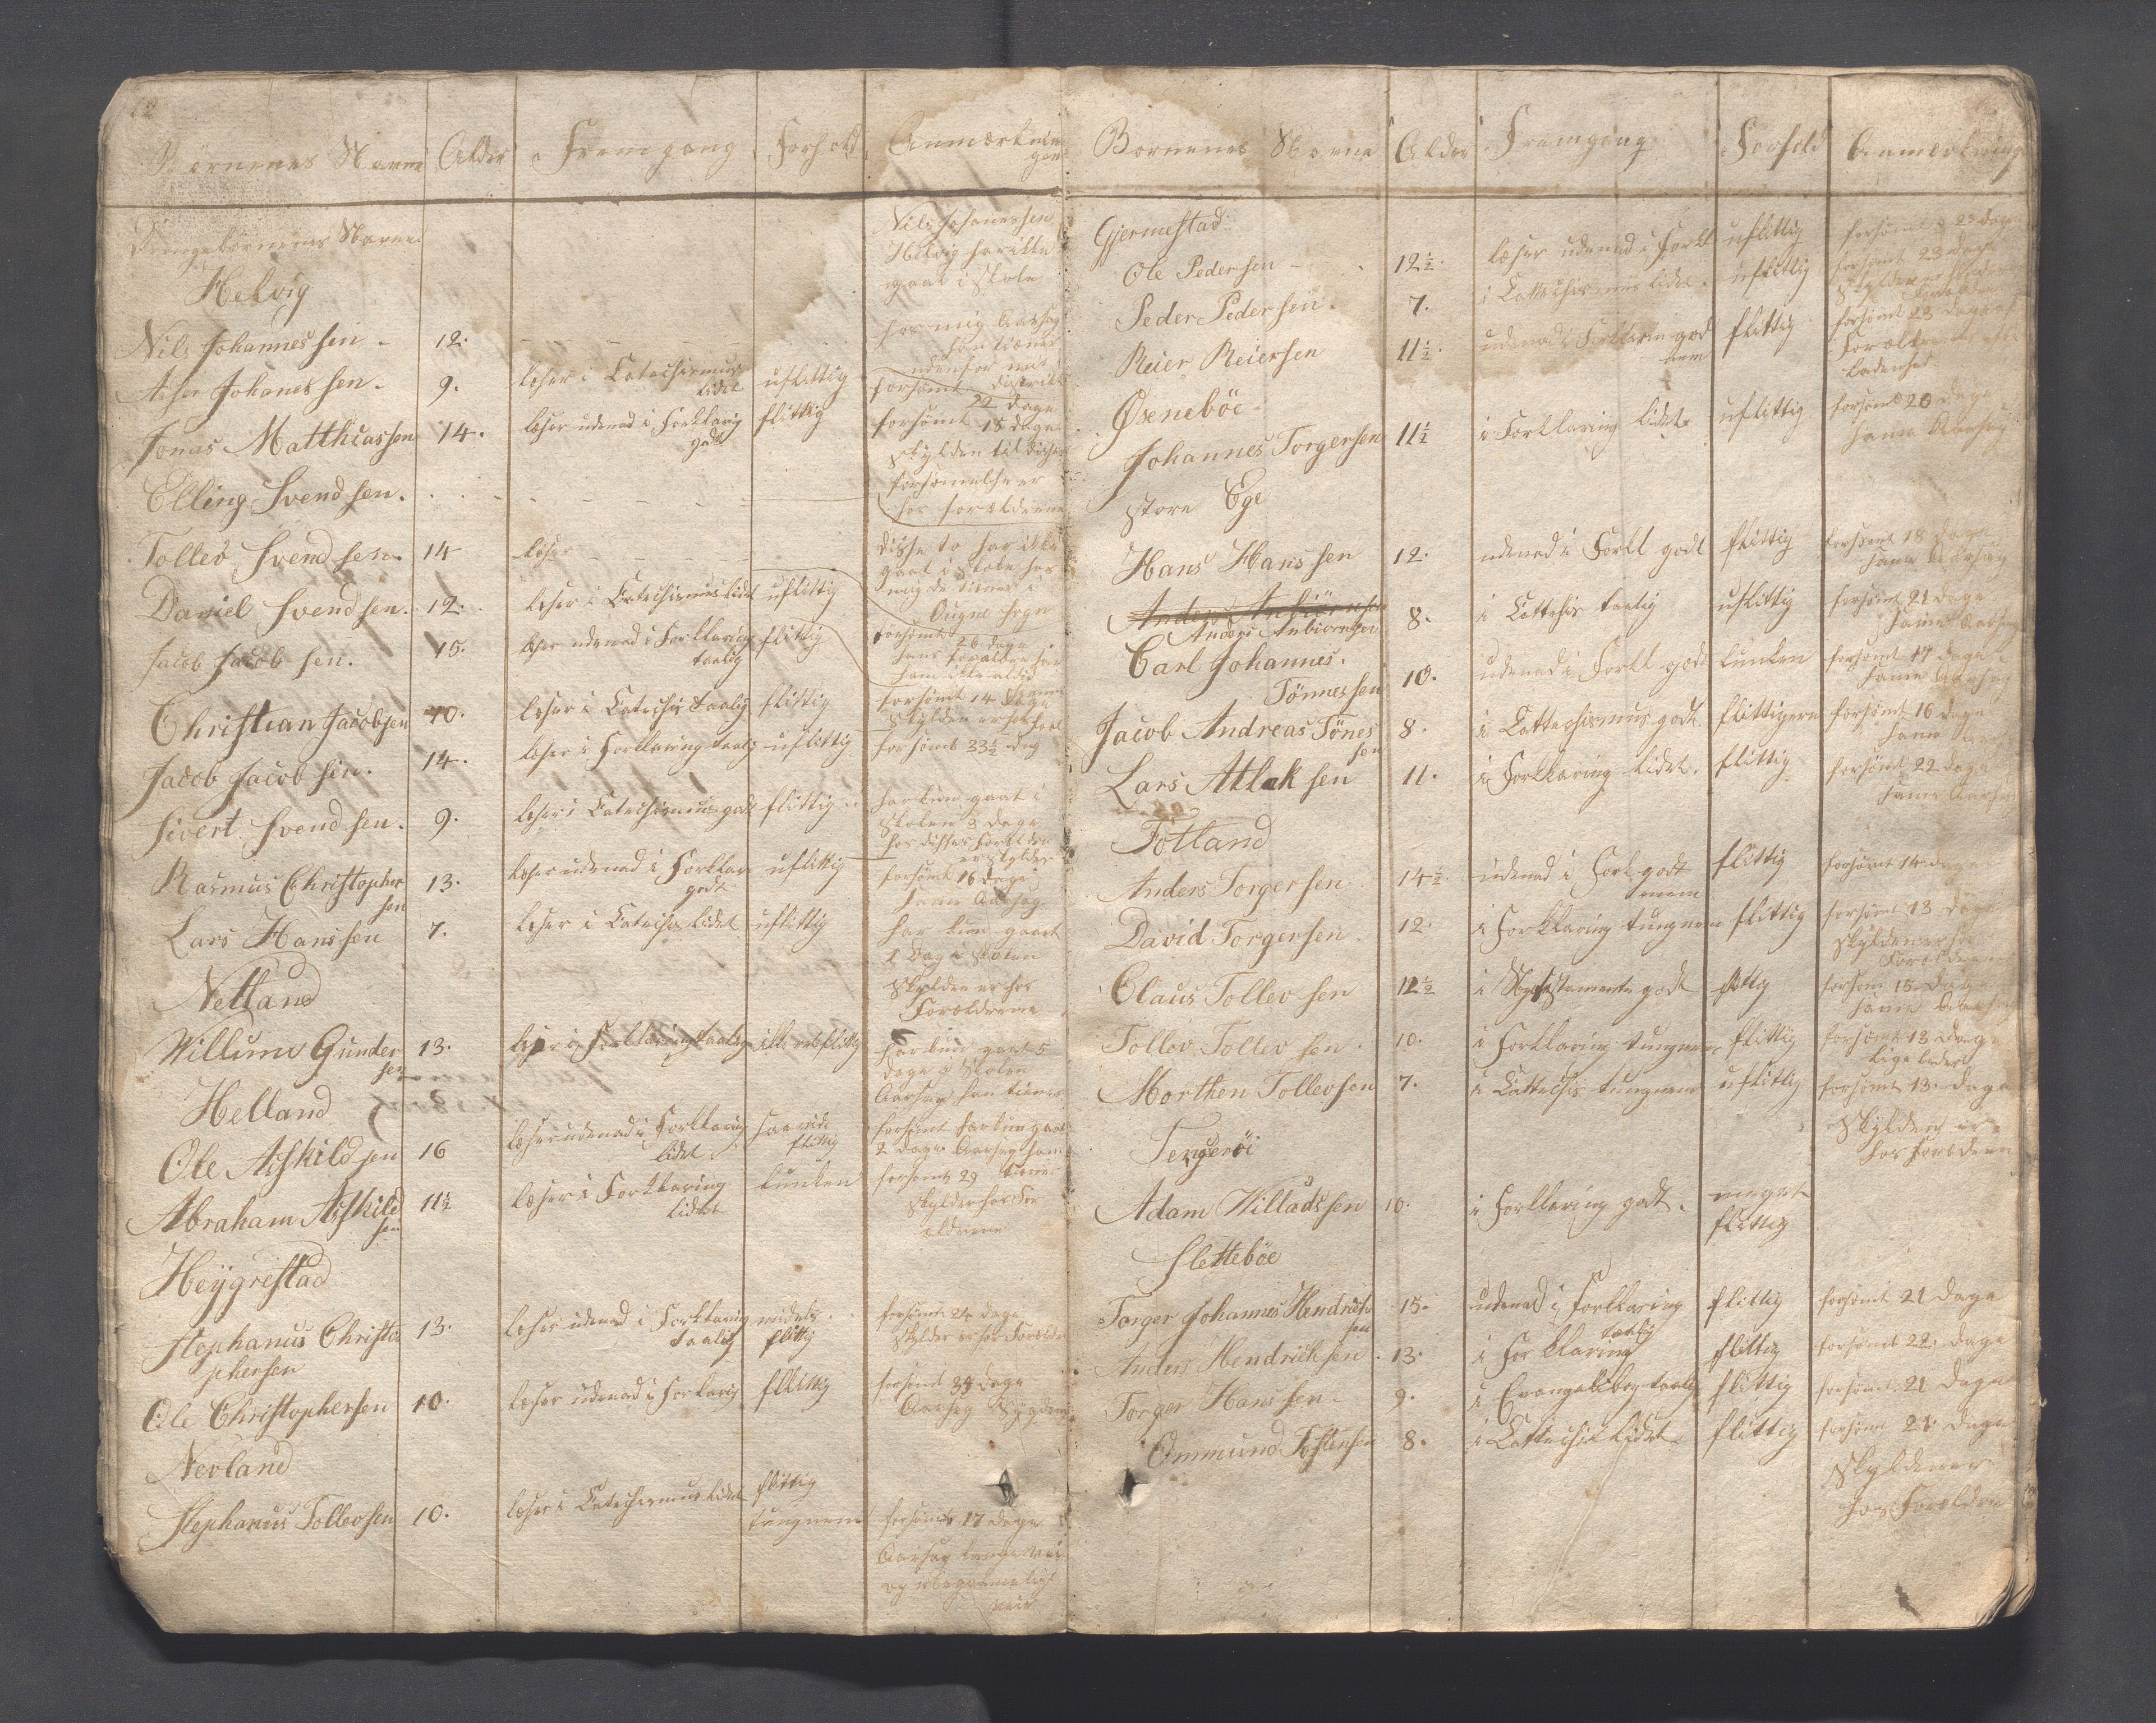 Børnenes Navne Alder Fremgang Forhold Anmærknin
gen
Drengebørnenes Navne
Nils Johannessen
Helvig har ikke
gaat i Skole
Helvig
hos mig Aarsag
han tiener
udenfor mit
District
Nils Johannessen - 12.
Aser Johanessen - 9. læser i Catechismus uflittig forsømt
lidet 22 Dage
Jonas Matthiassen 14. læser udenad i Forklaring flittig forsømt 18 Dage
godt
Skylden til disse
forsømmelse er
hos forældrene
Elling Svendsen.
Tollev Svendsen. 14 læser
disse to har ikke
gaat i Skole hos
mig de tiener i
Ougne Sogn
Daniel Svendsen. 12. læser i Catechismus lidet uflittig
Jacob Jacobsen. 15. læser udenad i Forklaring flittig forsømt
taalig 26 dage
Christian Jacobsen 10. læser i Catechis taalig flittig forsømt 14 Dage
Jacob Jacobsen. 14. læser i Forklaring taalig uflittig forsømt 33½ dag
Sivert Svendsen. 9. læser i Catechismus godt flittig har kun gaat i
Skolen 3 dage
hos disses Forældre
er Skylden
Rasmus Christopher 13. læser udenad i Forklar uflittig forsømt 16 dage
sen godt samme Aarsag
Lars Hanssen 7. læser i Catechis lidet uflittig har kun gaaet
1 Dag i Skolen
Skylden er hos
Forældrene
Netland
Willum Gunder 13. læser i Forklaring taalig ikke uflittig har kun gaat 5
sen dage i Skolen
Aarsag han tiener
Helland
Ole Asskildsen 16 læser udenad i Forklaring flittig forsømt har kun gaat
lidet 2 dage Aarsag han
tiener
Abraham Asskild 11½ læser i Forklaring lunken forsømt 29
sen lidet Skylden hos For
ældrene
Heÿgrestad
Stephanus Christo 13. læser udenad i Forklaring midels forsømt 24 dage
phersen taalig flittig Skylden er hos Forældr
Ole Christophersen 10. læser udenad i Forklaring flittig forsømt 38 dage
Aarsag Sygdom
Nevland
Stephanus Tollevsen 10. læser i Catechismus lidet flittig
tungnem forsømt 17 dage
Aarsag lange vei
og ubeqvemeligt
veir
Børnenes Navne Alder Fremgang Forhold Anmerkning
Gjermestad
Ole Pedersen - 12½. læser udenad i Forkl uflittig forsømt 23 dage
Peder Pedersen. 7. i Cattechismus lidet. uflittig forsømt 23 dage
Reier Reiersen 11½. udenad i Forklarin god flittig forsømt 23 dage
nem
Forældre
ladenhed
Øseneböe
Johannes Torgersen 11½ i Forklaring lidet uflittig forsømt 20 dage
samme Aarsag
store Ege
Hans Hanssen 12. udenad i Forkl godt flittig forsømt 18 dage
samme Aarsag
Anders Anbiørnsen 8. i Cattechis taalig uflittig forsømt 21 dage
samme Aarsag
Carl Johannes.
Tønnessen 10. udenad i Forkl godt lunken forsømt 17 dage
samme Aarsag
Jacob Andreas Tønes 8. i Cattechismus godt flittigere forsømt 16 dage
sen samme Aarsag
Lars Atlaksen 11. i Forklaring lidet. flittig forsømt 22 dage
samme Aarsag
Fotland
Anders Torgersen 14½. udenad i Fork godt flittig forsømt 14 dage
nem
David Torgersen. 12. i Forklaring tungnem flittig forsømt 13 dage
Skylden er hos
Forældrene
Claus Tollevsen 12½ i Nytestamente godt flittig forsøm 15 dage
samme Aarsag
Tollev Tollevsen. 10. i Forklaring tungnem flittig forsømt 13 dage
lige ledes
Morthen Tollevsen 7. i Cattechis tungnem uflittig forsømt 13. dage
Skylden er
hos Forældrene
Tengeröi
Adam Willadssen 10. i Forklaring godt. meget
flittig
Slettebóe
Torger Johannes Hendrich 15. udenad i Forklaring flittig forsømt 21 dage
sen taalig
Anders Hendrichsen. 13. i Forklaring flittig forsømt 22. dage
Torger Hanssen. 9. i Evangeliebog taalig flittig forsømt 21 dage
Ommund Tostensen 8. i Cattechis lidet flittig forsømt 21. dage
Skylden er
hos Forældre